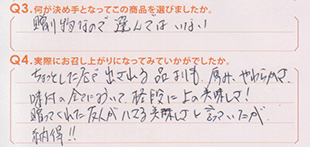 Q3.何が決め手となってこの商品を選びましたか。
贈り物なので選んではいない!
Q4.実際にお召し上がりになってみていかがでしたか。
ちょっとした店で出される品よりも、厚み、やわらかさ、
味付の全てにおいて、格段に上の美味しさ!
贈ってくれた友人がハマる美味しさと言っていたが
納得!!